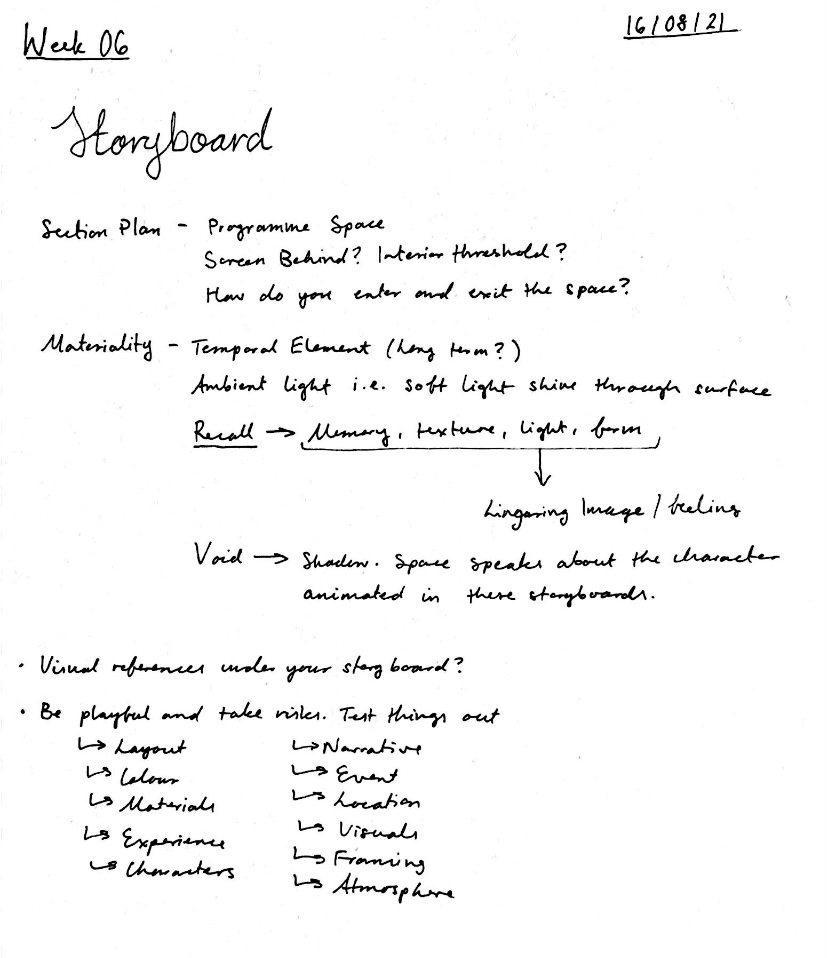 Week 06
16/08/21
Storyboard
Section Plan - Programme Space
Screen Behind? Interior threshold?
How do you enter and exit the space?
Materiality - Temporal Element (Long term?)
Ambient light i.e. soft light shine through surface
Recall → Memory, texture, light, form
Lingering Image / feeling
Void → Shadow. Space speaks about the character
animated in these storyboards.
• Visual references under your storyboard?
• Be playful and take risks. Test things out
↳ Layout
↳ Colour
↳ Materials
↳ Experience
↳ Characters
↳ Narrative
↳ Event
↳ Location
↳ Visuals
↳ Framing
↳ Atmosphere